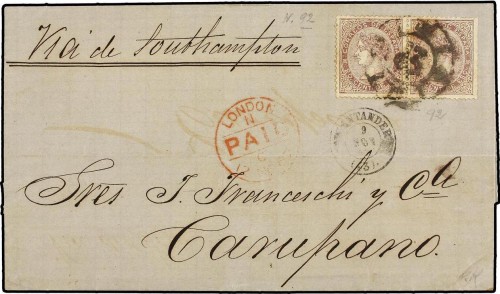 V. 92
Via de Southampton
92
LONDON
N
PAID
SANTANDER
9
Sres J. Franceschi y Cia
Carupano.